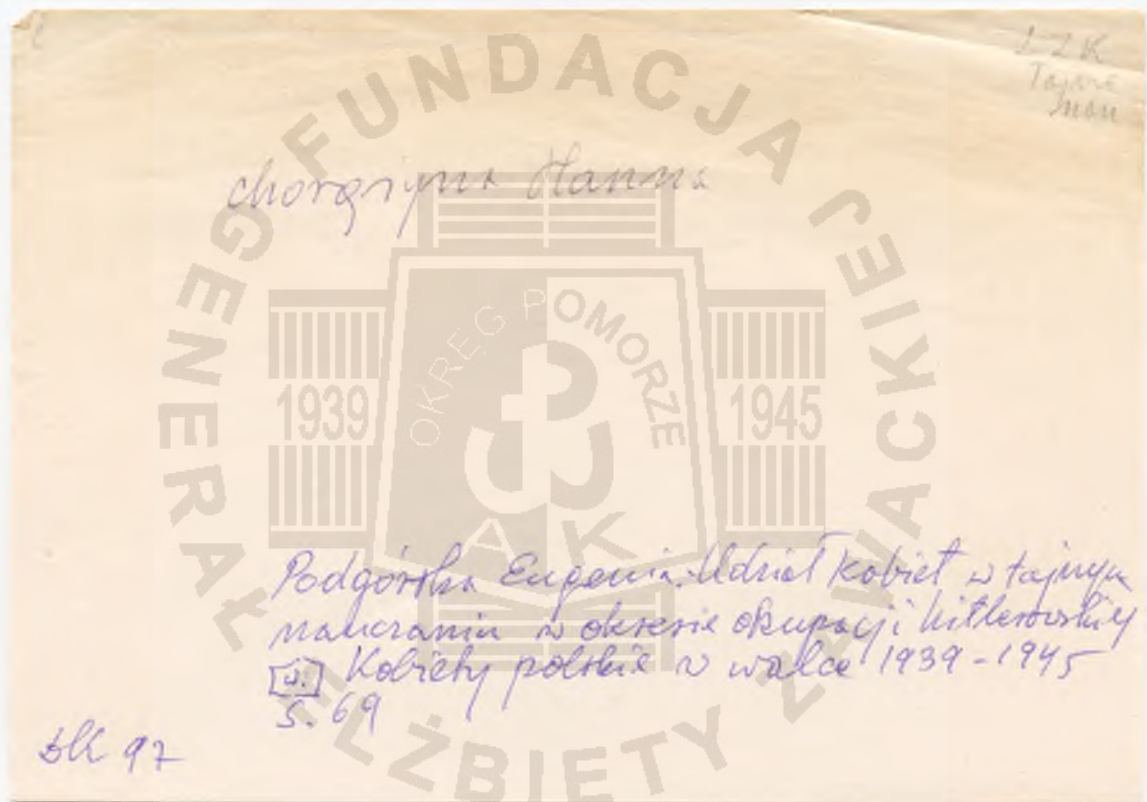 Tajne
nau
Chorążyna Hanna
Podgórska Eugenia. Udział kobiet w tajnym
nauczaniu w okresie okupacji hitlerowskiej
[w:] Kobiety polskie w walce 1939-1945
s. 69
97
FUNDACJA
GENERAŁ ELŻBIETY ZAWACKIEJ
OKRĘG POMORZE
1939
1945
AK